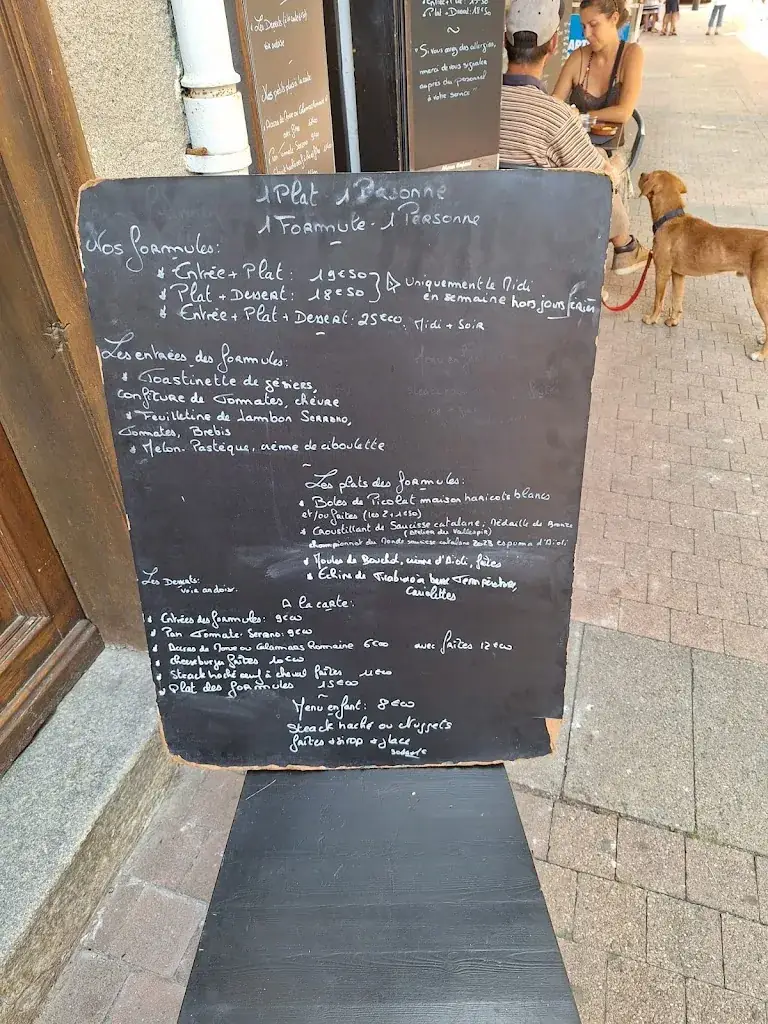 1 Plat 1 Personne
1 Formule - 1 Personne
Nos formules:
* Entrée + Plat: 19€50
* Plat + Dessert: 18€50
Uniquement le Midi
en semaine hors jours fériés
* Entrée + Plat + Dessert: 25€00: Midi + Soir
Les entrées des formules:
* Toastinette de gésiers,
confiture de Tomates, chèvre
* Feuilletine de Jambon Serrano,
Tomates, Brebis
* Melon. Pastèque, crème de ciboulette
~
Les plats des formules:
* Boles de Picolat maison haricots blancs
et/ou frites (les 2 + 1€50)
* Croustillant de Saucisse catalane; Médaille de Bronze
(Atelier du Vallespir)
championnat du Monde saucisse catalane 2023 espuma d'Aïoli
* Moules de Bouchot, crème d'Aïoli, frites
* Echine de à basse Température,
Les Desserts:
voir ardoise.
A la carte:
* Entrées des formules: 9€00
* Pan Tomate. Serrano: 9€00
* ou Calamars Romaine 6€00 avec frites 12€00
* cheeseburger frites 10€00
* Steack haché oeuf à cheval frites 11€00
* Plat des formules 15€00
~
Menu enfant: 8€00
Steack haché ou Nuggets
frites + sirop + glace
Les Desserts
voir ardoise
Nos petits plats à la carte
Plat + Dessert: 18€50
~
"Si vous avez des allergies,
merci de vous signaler
auprès du personnel
à votre service"